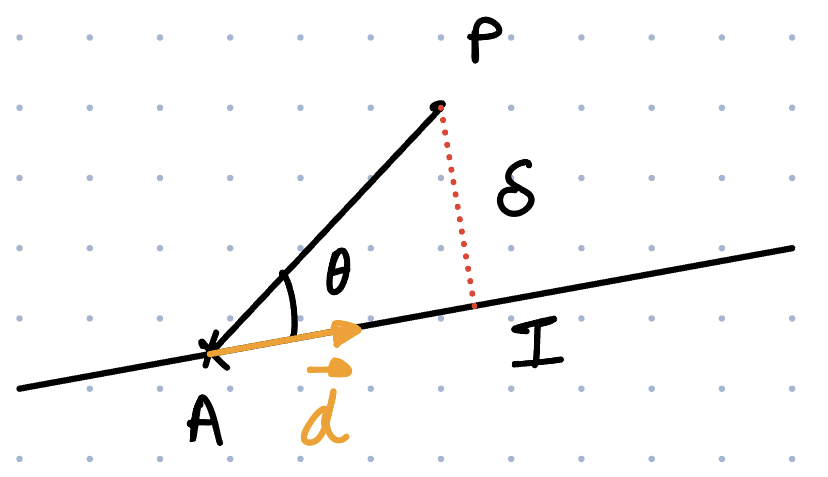 P
δ
θ
I
A
d⃗